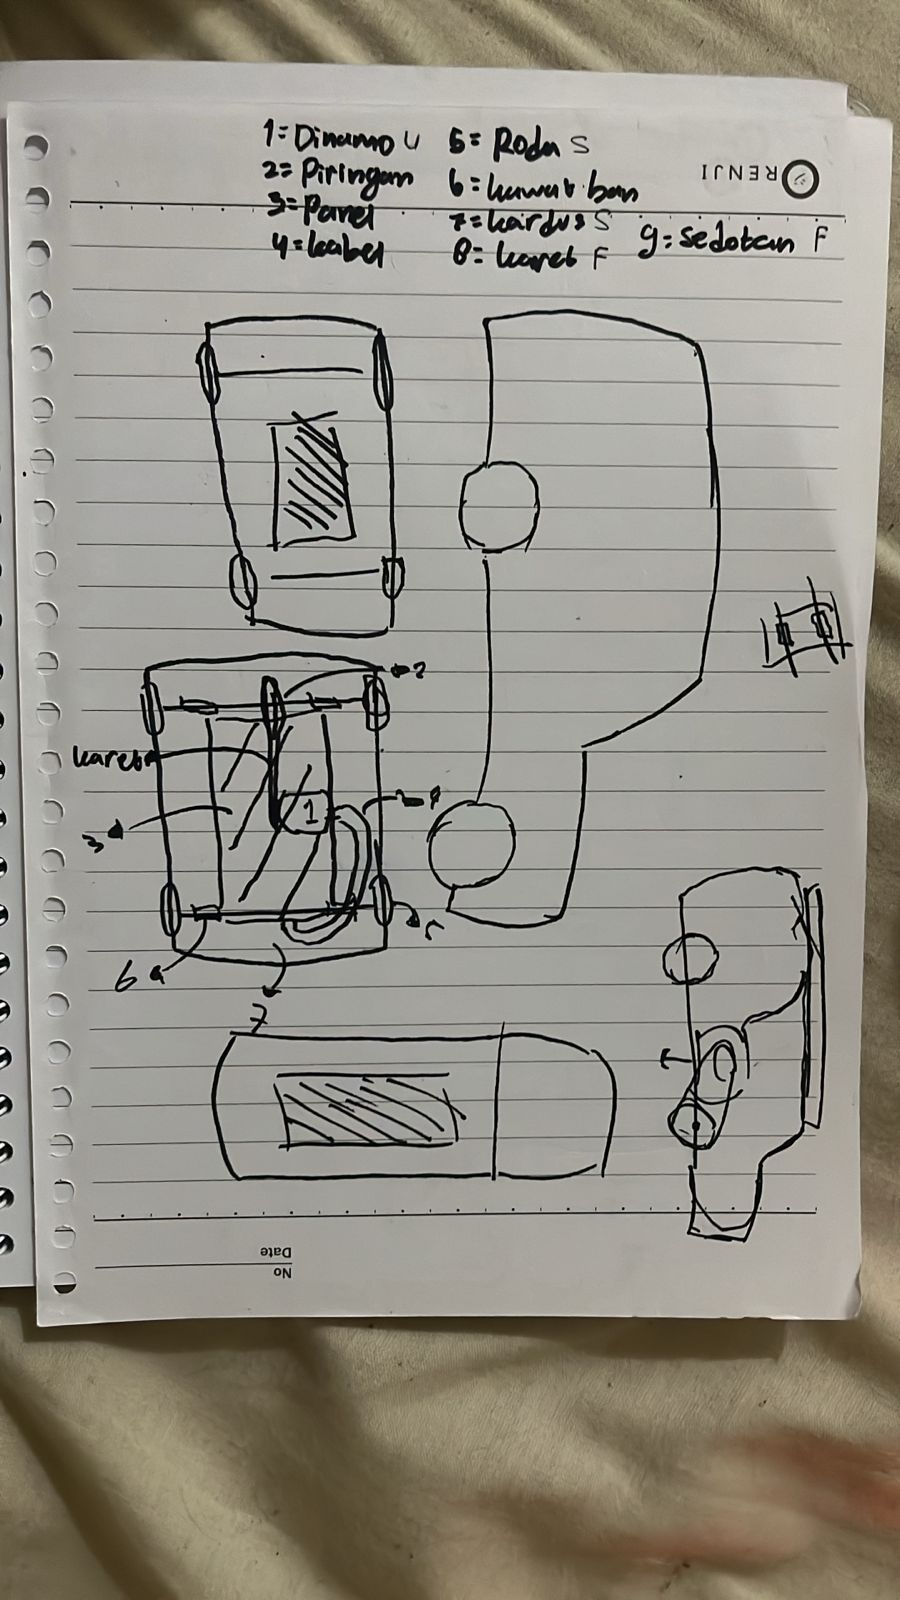 1= Dinamo U
2= Piringan
3= Panel
4= kabel
5= Roda S
6= kawat ban
7= kardus S
8= karet F
9= sedotan F
RENJI
2
karet
1
3
6
7
No
Date